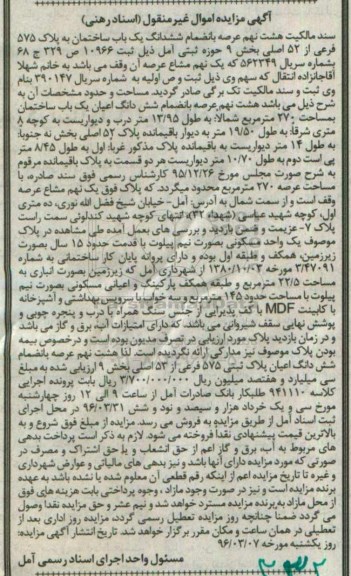 آگهی مزایده اموال غیر منقول (اسناد رهنی)
سند مالکیت هشت نهم عرصه بانضمام ششدانگ یک باب ساختمان به پلاک ۵۷۵
فرعی از ۵۲ اصلی بخش ۹ حوزه ثبتی آمل ذیل ثبت ۱۰۹۶۶ ص ۳۲۹ ج ۶۸
بشماره سریال ۵۶۲۳۴۹ که یک نهم مشاع عرصه آن وقف می باشد به خانم شهلا
آقاجانزاده انتقال که سهم وی ذیل ثبت و ص اولیه به شماره سریال ۳۹۰۱۴۷ بنام
وی ثبت و سند مالکیت تک برگی صادر گردید. مساحت و حدود مشخصات آن به
شرح ذیل می باشد هشت نهم عرصه بانضمام شش دانگ اعیان یک باب ساختمان
بمساحت ۲۷۰ مترمربع شمالا: به طول ۱۳/۹۵ متر درب و دیواریست به کوچه ۸
متری شرقا: به طول ۱۹/۵۰ متر به دیوار باقیمانده پلاک ۵۲ اصلی بخش نه جنوبا:
به طول ۱۴ متر دیواریست به باقیمانده پلاک مذکور غربا: اول به طول ۸/۴۵ متر
پی است دوم به طول ۱۰/۷۰ متر دیواریست هر دو قسمت به پلاک باقیمانده مرقوم
به شرح صورت مجلس مورخ ۹۵/۱۲/۲۶ کارشناس رسمی فوق سند صادره، با
مساحت عرصه ۲۷۰ مترمربع محدود میگردد. که پلاک فوق یک نهم مشاع عرصه
وقف است و از سمت شمال به آدرس: آمل- خیابان شیخ فضل الله نوری، ده متری
اول، کوچه شهید عباسی (شهداء ۳۲) انتهای کوچه شهید کندلوتی سمت راست
پلاک ۷- عزیمت و ضمن بازدید و بررسی های بعمل آمده طی مشاهده در پلاک
موصوف یک واحد مسکونی بصورت نیم پیلوت با قدمت حدود ۱۵ سال بصورت
زیرزمین، همکف و طبقه اول بوده و دارای پروانه پایان کار ساختمانی به شماره
۳/۴۷۰۹۱ مورخه ۱۳۸۰/۱۰/۰۳ از شهرداری آمل که زیرزمین بصورت انباری به
مساحت ۲۲/۵ مترمربع و طبقه همکف پارکینگ و اعیانی مسکونی بصورت نیم
پیلوت با مساحت حدود ۱۴۵ مترمربع و سه خواب با سرویس بهداشتی و آشپزخانه
با کابینت MDF با کف پذیرایی از جنس سنگ همراه با درب و پنجره چوبی و
پوشش نهایی سقف شیروانی می باشد. که دارای امتیازات آب، برق و گاز می باشد
و در زمان بازدید پلاک مورد ارزیابی در تصرف مدیون بوده است و درخصوص بیمه
بودن پلاک موصوف نیز مدارکی ارائه نگردیده است. لذا هشت نهم عرصه بانضمام
شش دانگ اعیان پلاک ثبتی ۵۷۵ فرعی از ۵۳ اصلی بخش ۹ ارزیابی شده به مبلغ
سی میلیارد و هفتصد میلیون ریال ۳/۷۰۰/۰۰۰/۰۰۰ ریال بابت پرونده اجرایی
کلاسه ۹۴۱۱۱۰ طلبکار بانک صادرات آمل از ساعت ۹ الی ۱۲ روز چهارشنبه
مورخ سی و یک خرداد هزار و سیصد و نود و شش ۹۶/۰۳/۳۱ در محل اجرای
ثبت اسناد آمل از طریق مزایده به فروش می رسد. مزایده از مبلغ فوق شروع و به
بالاترین قیمت پیشنهادی نقدا فروخته می شود. لازم به ذکر است پرداخت بدهی
های مربوط به آب، برق و گاز اعم از حق انشعاب و یا حق اشتراک و مصرف در
صورتی که مورد مزایده دارای آنها باشد و نیز بدهی های مالیاتی و عوارض شهرداری
و غیره تا تاریخ مزایده اعم از اینکه رقم قطعی آن معلوم شده یا نشده باشد به عهده
برنده مزایده است و نیز در صورت وجود مازاد ، وجوه پرداختی بابت هزینه های فوق
از محل مازاد به برنده مزایده مسترد خواهد شد و نیم عشر و حق مزایده نقدا وصول
می گردد ضمنا چنانچه روز مزایده تعطیل رسمی گردد، مزایده روز اداری بعد از
تعطیلی در همان ساعت و مکان مقرر برگزار خواهد شد. تاریخ انتشار آگهی مزایده:
روز یکشنبه مورخه ۹۶/۰۳/۰۷
مسئول واحد اجرای اسناد رسمی آمل